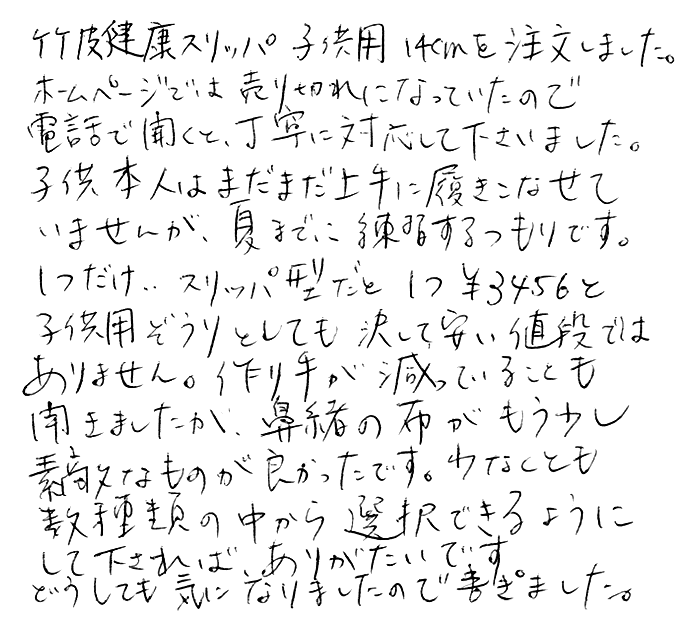 竹皮健康スリッパ 子供用 14cmを注文しました。
ホームページでは売り切れになっていたので
電話で聞くと、丁寧に対応して下さいました。
子供本人はまだまだ上手に履きこなせて
いませんが、夏までに練習するつもりです。
1つだけ.. スリッパ型だと 1つ ¥3456と
子供用ぞうりとしても決して安い値段では
ありません。作り手が減っていることも
聞きましたが、鼻緒の布がもう少し
素敵なものが良かったです。少なくとも
数種類の中から選択できるように
して下されば、ありがたいです
どうしても気になりましたので書きました。